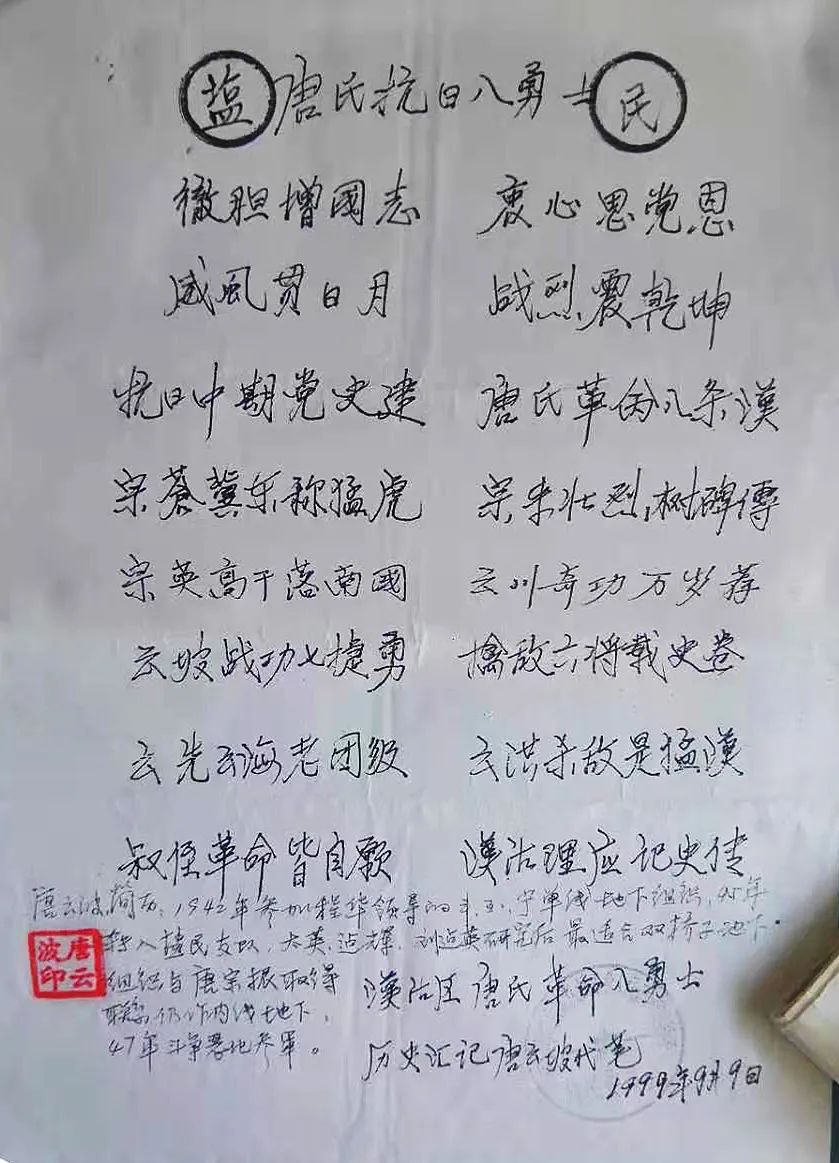 盐 唐氏抗日八勇士 民
徹胆增國志 衷心思党恩
威風贯日月 战烈震乾坤
抗日中期党史建 唐氏革命八条漢
宗蒼冀东称猛虎 宗来壮烈树碑傳
宗英高干落南國 云川奇功万岁荐
云坡战功七捷勇 擒敌六将载史卷
云先云海老团级 云洪杀敌是猛漢
叔侄革命皆自愿 漢沽理应记史传
唐云波简历:1942年参加程华领导的 宁单线地下组织,45年
转入盐民支队,大英、 研究后最适合双桥子地下
组织与唐宗振取得
联系仍作内线地下,
47年斗争暴地参军。
唐云波印
漢沽区唐氏革命八勇士
历史汇记唐云坡代笔
1999年9月9日